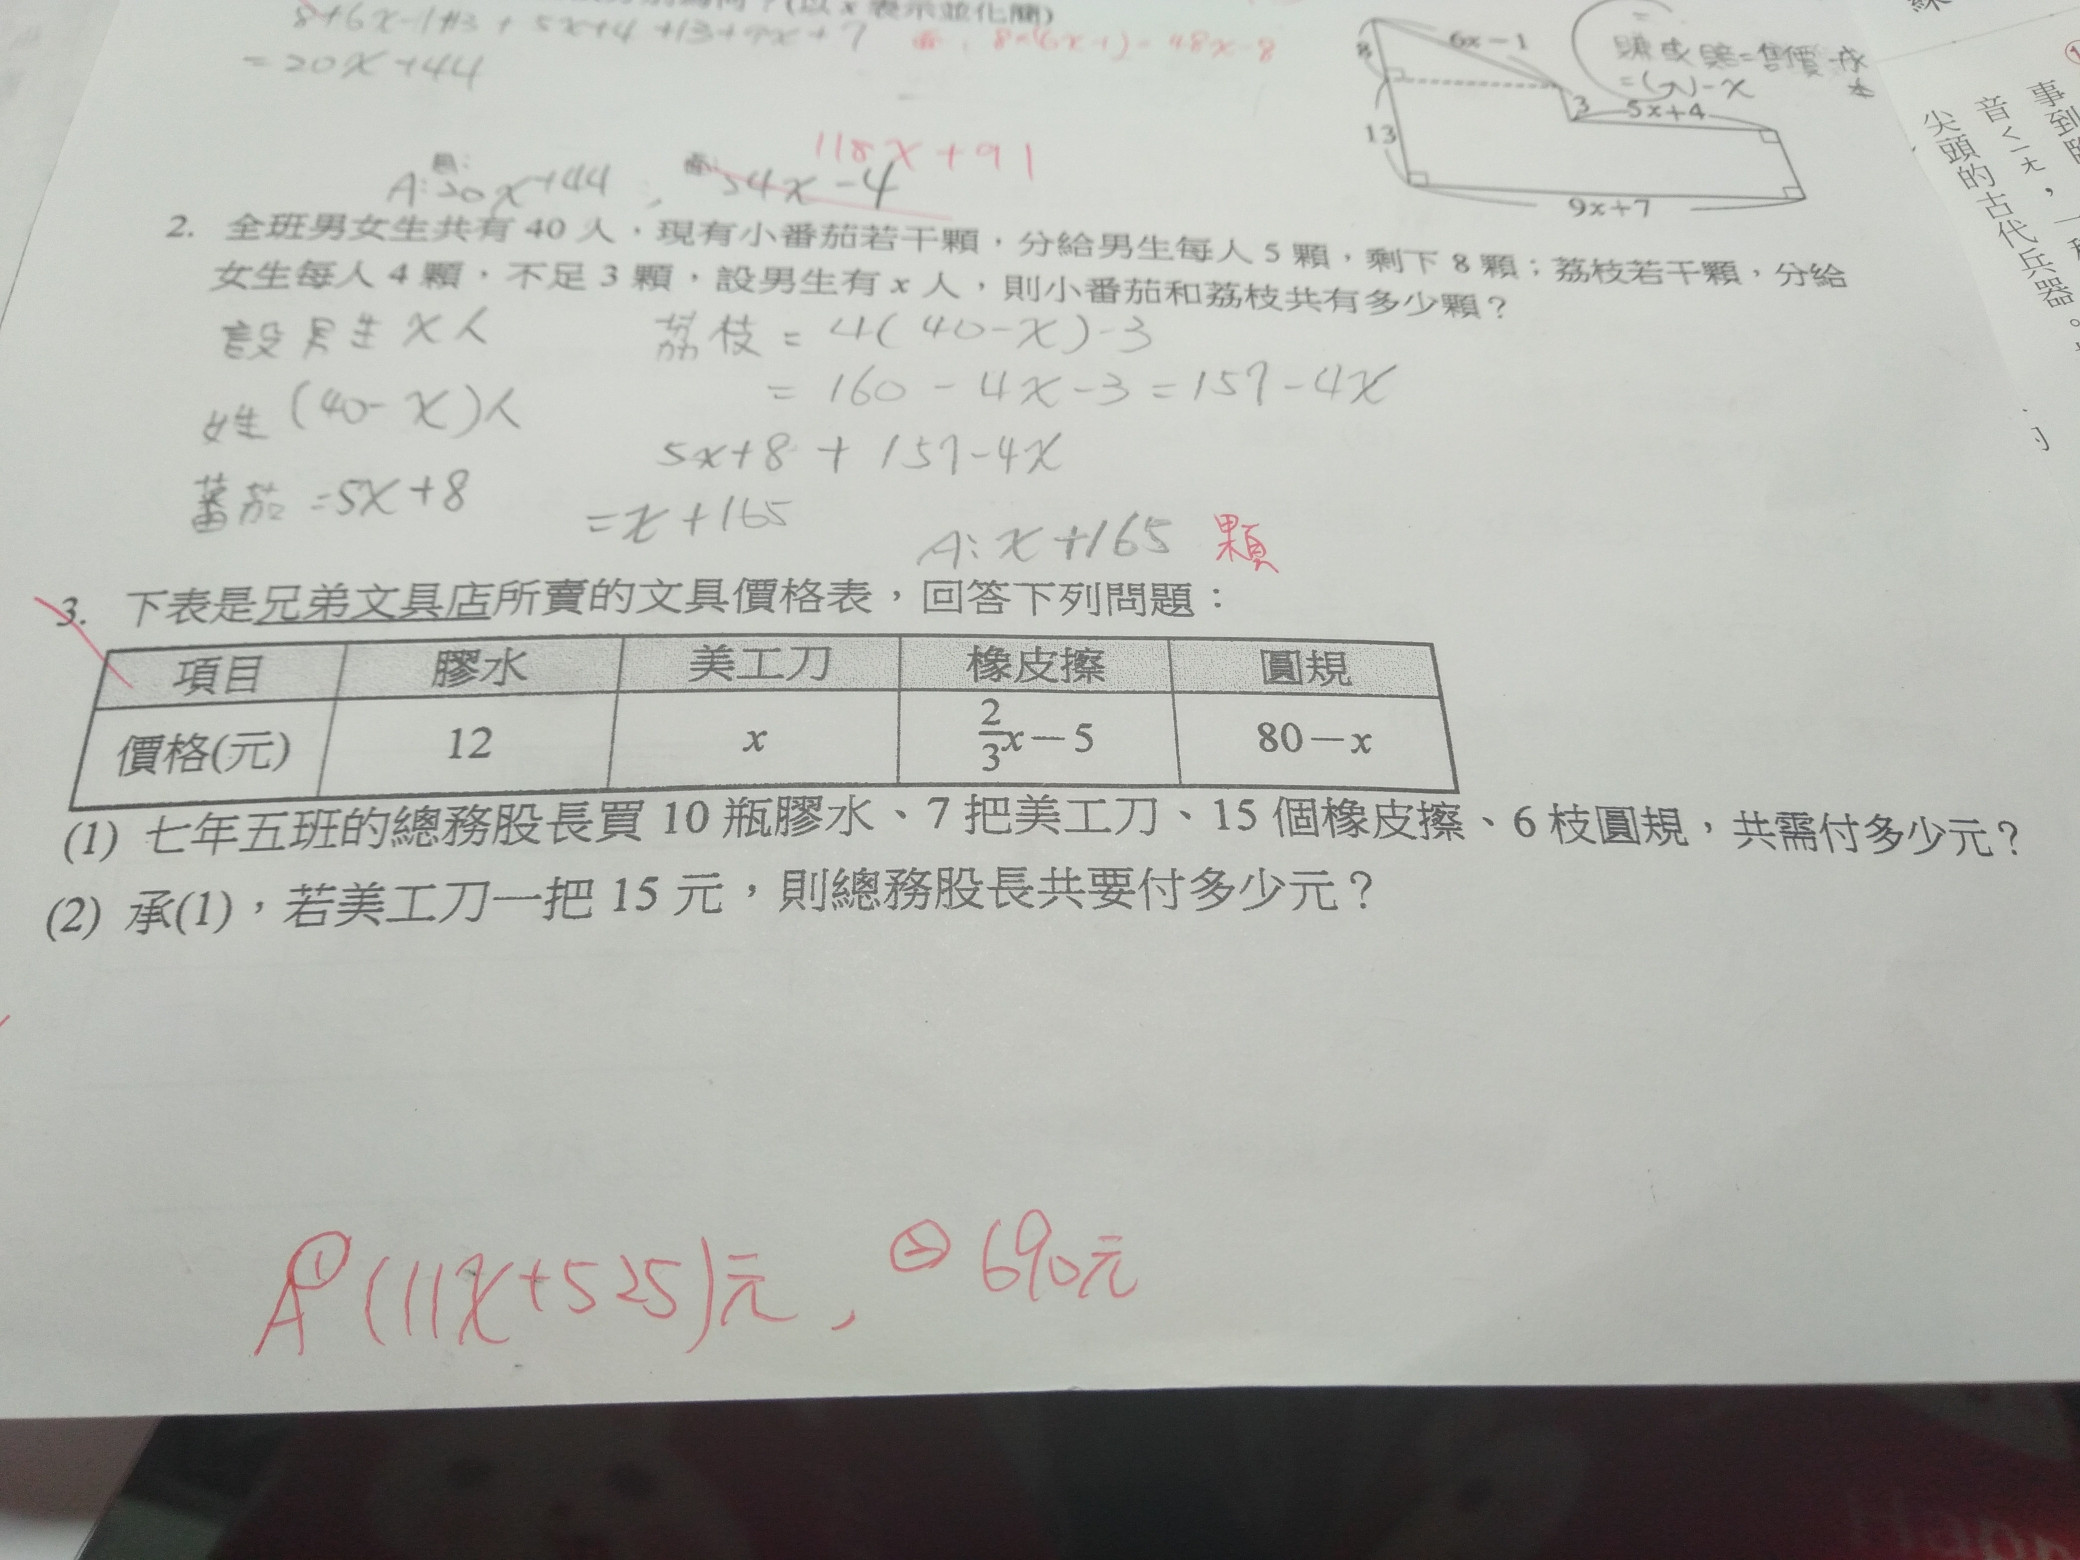 表示並化簡)
8+6x-1+13+5x+4+13+9x+7
8×(6x-1)=48x-8
=20x+44
118x+91
A:20x+44;
54x-4
8
6x-1
3
5x+4
13
9x+7
售價-成本
=( )-x
2. 全班男女生共有 40 人,現有小番茄若干顆,分給男生每人 5 顆,剩下 8 顆;荔枝若干顆,分給
女生每人 4 顆,不足 3 顆,設男生有 x 人,則小番茄和荔枝共有多少顆?
設男生 x人
荔枝=4(40-x)-3
=160-4x-3=157-4x
女生(40-x)人
5x+8+157-4x
蕃茄=5x+8
=x+165
A:x+165 顆
3. 下表是兄弟文具店所賣的文具價格表,回答下列問題:
項目 膠水 美工刀 橡皮擦 圓規
價格(元) 12 x 2/3x-5 80-x
(1) 七年五班的總務股長買 10 瓶膠水、7 把美工刀、15 個橡皮擦、6 枝圓規,共需付多少元?
(2) 承(1),若美工刀一把 15 元,則總務股長共要付多少元?
A①(11x+525)元,㊁690元
事到臨
音ㄑㄧㄤ,一種
尖頭的古代兵器。